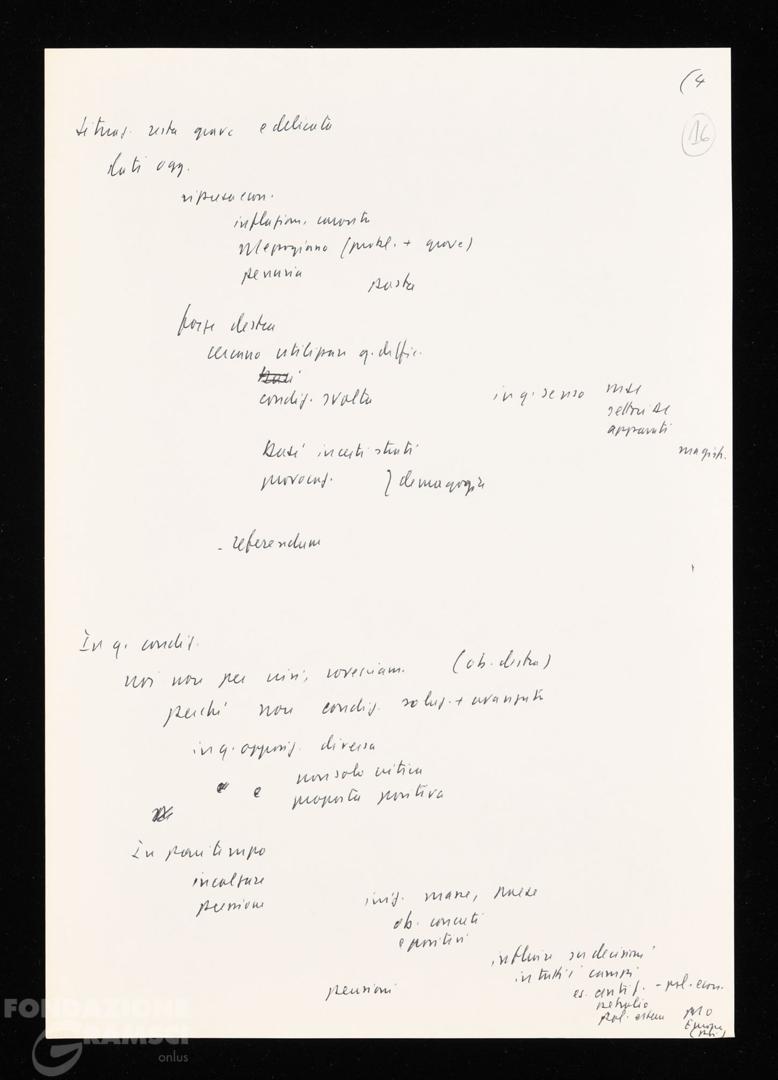 (4
16
situaz. resta grave e delicata
dati ogg.
ripresa econ.
inflazion. carovita
Mezzogiorno (probl. + grave)
penuria
pasta
forze destra
cercano utilizzare q. diffic.
condiz. svolta
in q. senso
settori
apparati
magistr.
basi incerti strati
provocaz. } demagogia
- referendum
In q. condiz.
noi non per crisi, rovesciam. (ob. destra)
perché non condiz. soluz. + avanzata
in q. opposiz. diversa
e e non solo critica
proposta positiva
In pari tempo
incalzare
pressione
iniz. massa, paese
ob. concreti
e positivi
influire su decisioni
in tutti i campi
pensioni
es. antif. - pol. econ.
petrolio
pol. estera MO
Europa
FONDAZIONE
GRAMSCI
onlus